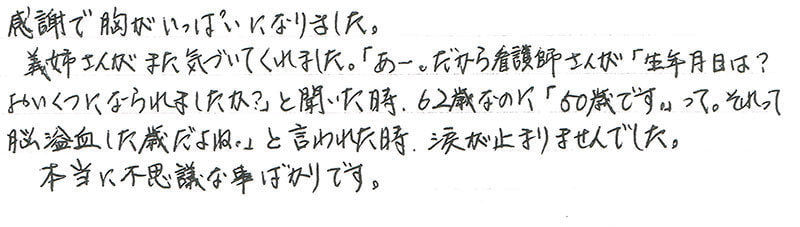 感謝で胸がいっぱいになりました。
義姉さんがまた気づいてくれました。「あー。だから看護師さんが「生年月日は?
おいくつになられましたか?」と聞いた時、62歳なのに「50歳です。」って。それって
脳溢血した歳だよね。」と言われた時、涙が止まりませんでした。
本当に不思議な事ばかりです。